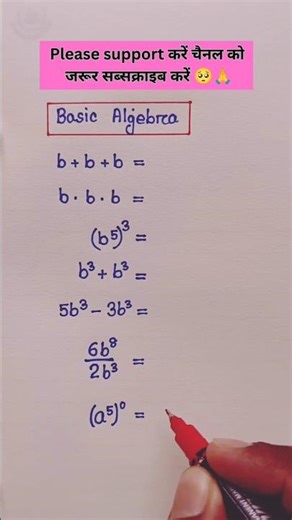 Please support करें चैनल को
जरूर सब्सक्राइब करें 🥺🙏
Basic Algebra
b + b + b =
b · b · b =
(b⁵)³ =
b³ + b³ =
5b³ − 3b³ =
6b⁸
2b³ =
(a⁵)⁰ =